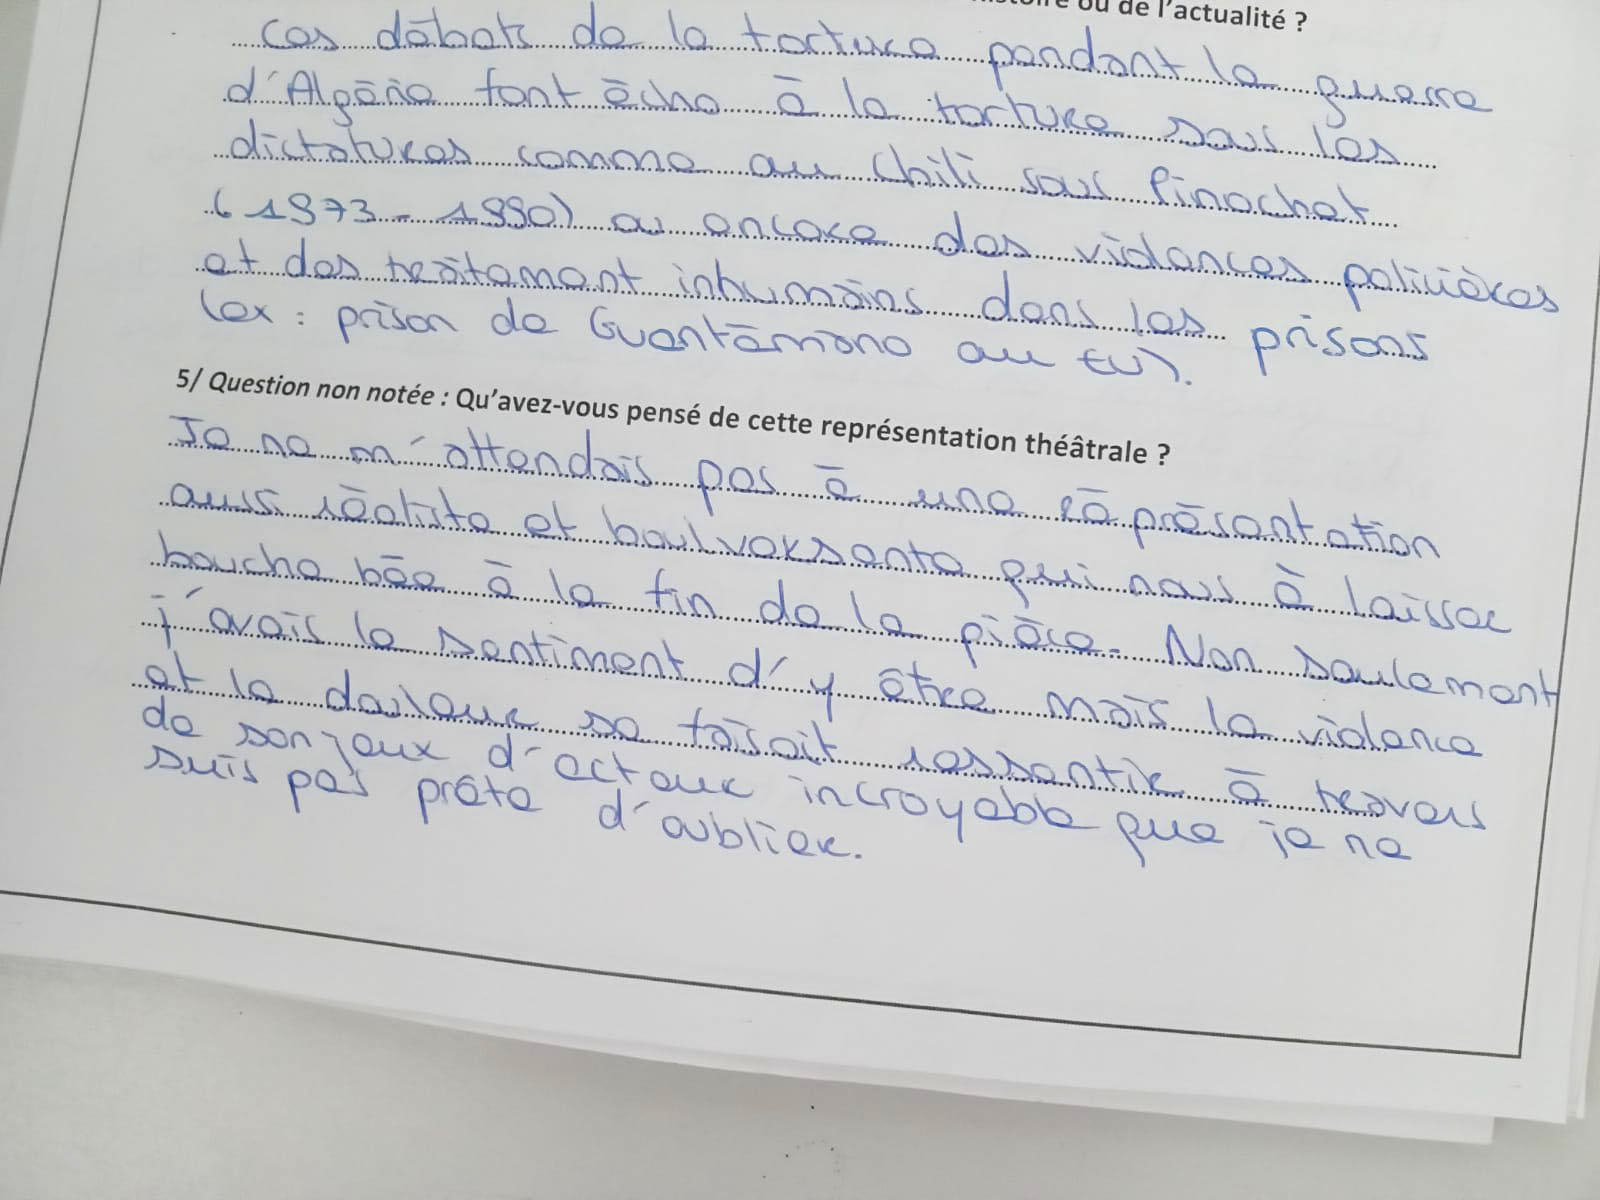 ou de l'actualité ?
Ces débats de la torture pendant la guerre
d'Algérie font écho à la torture sous les
dictatures comme au Chili sous Pinochet
(1973-1990) ou encore des violences policières
et des traitement inhumains dans les prisons
(ex : prison de Guantámono au EU).
5/ Question non notée : Qu'avez-vous pensé de cette représentation théâtrale ?
Je ne m'attendais pas à une réprésentation
aussi réaliste et boulversante qui nous à laisser
bouche bée à la fin de la pièce. Non seulement
j'avais le sentiment d'y être mais la violence
et la douleur se faisait ressentir à travers
de son jeux d'acteur incroyable que je ne
suis pas prête d'oublier.